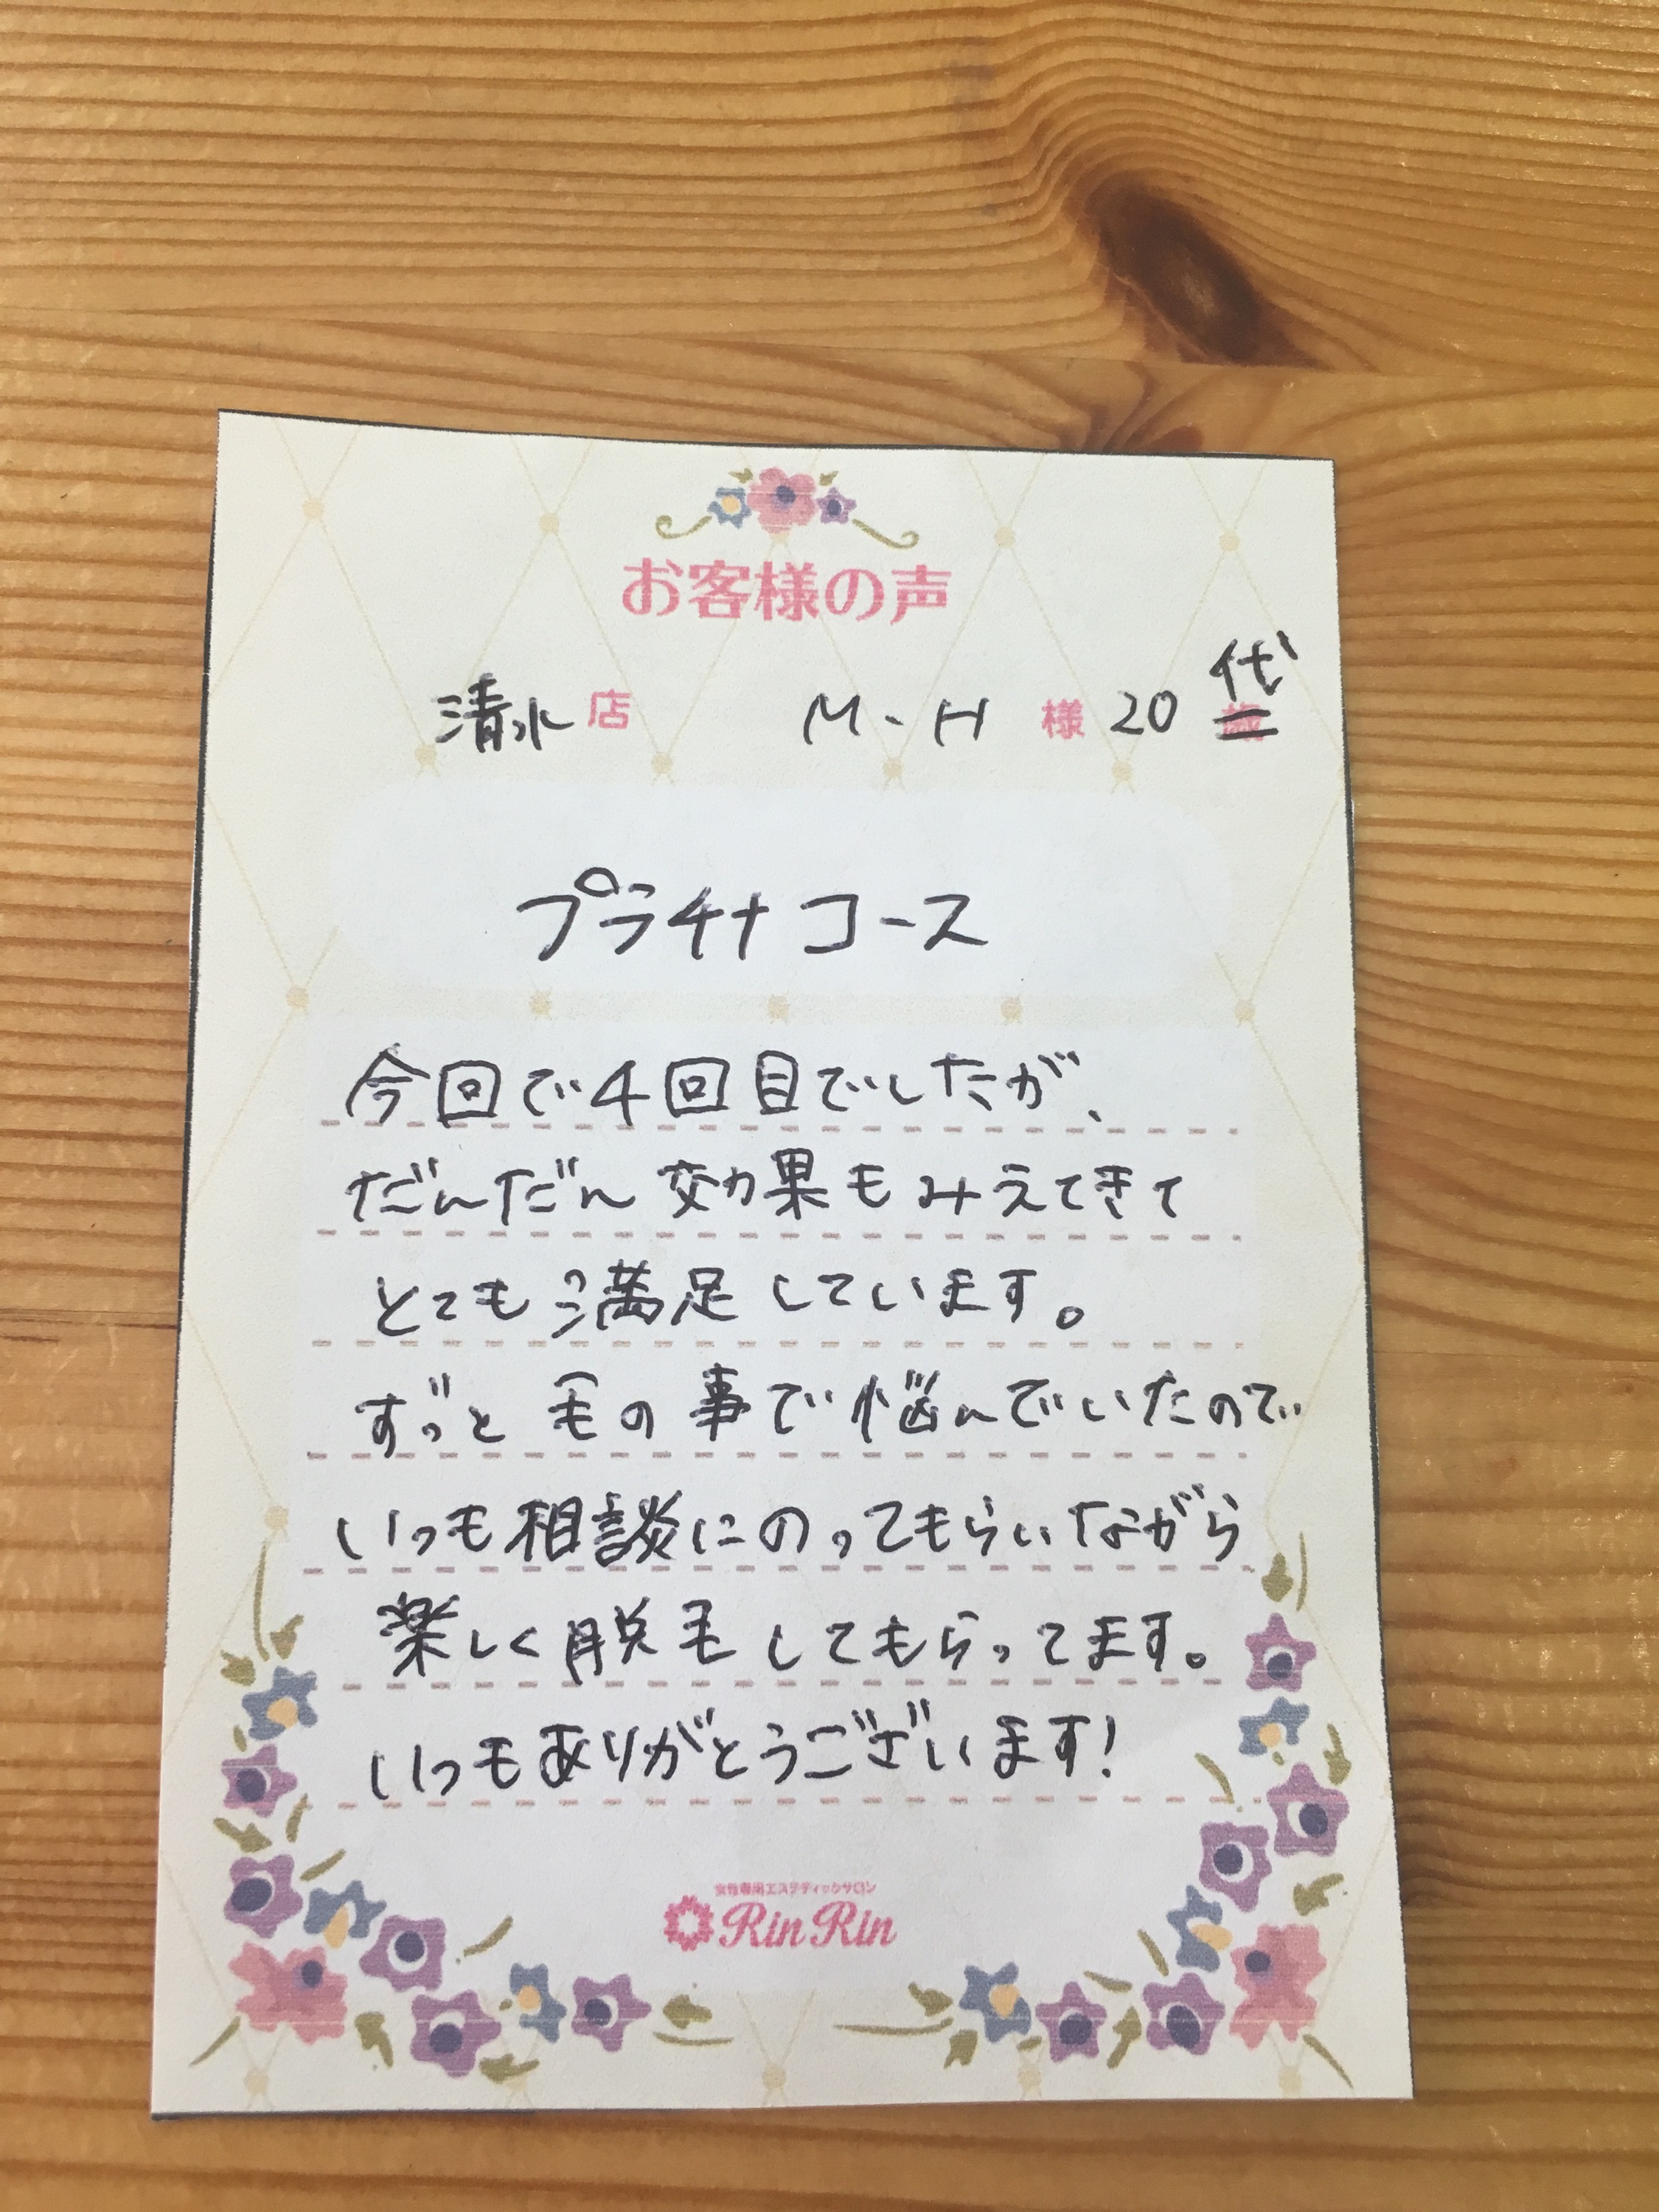 お客様の声
清水店 M-H 様 20代
プラチナコース
今回で4回目でしたが、
だんだん効果もみえてきて
とても満足しています。
ずっと毛の事で悩んでいたので
いつも相談にのってもらいながら
楽しく脱毛してもらってます。
いつもありがとうございます!
女性専用エステティックサロン
RinRin